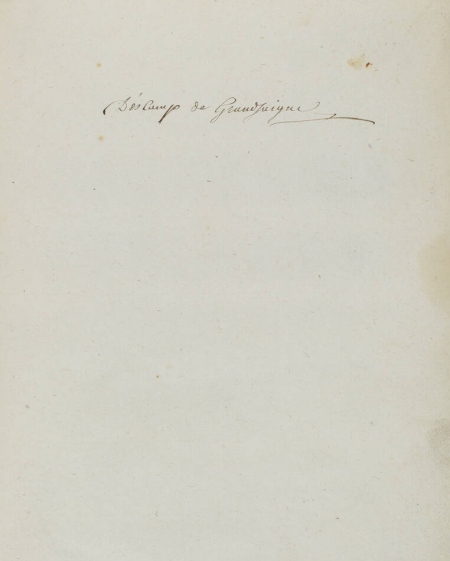 Déscamp de Grandsaigne